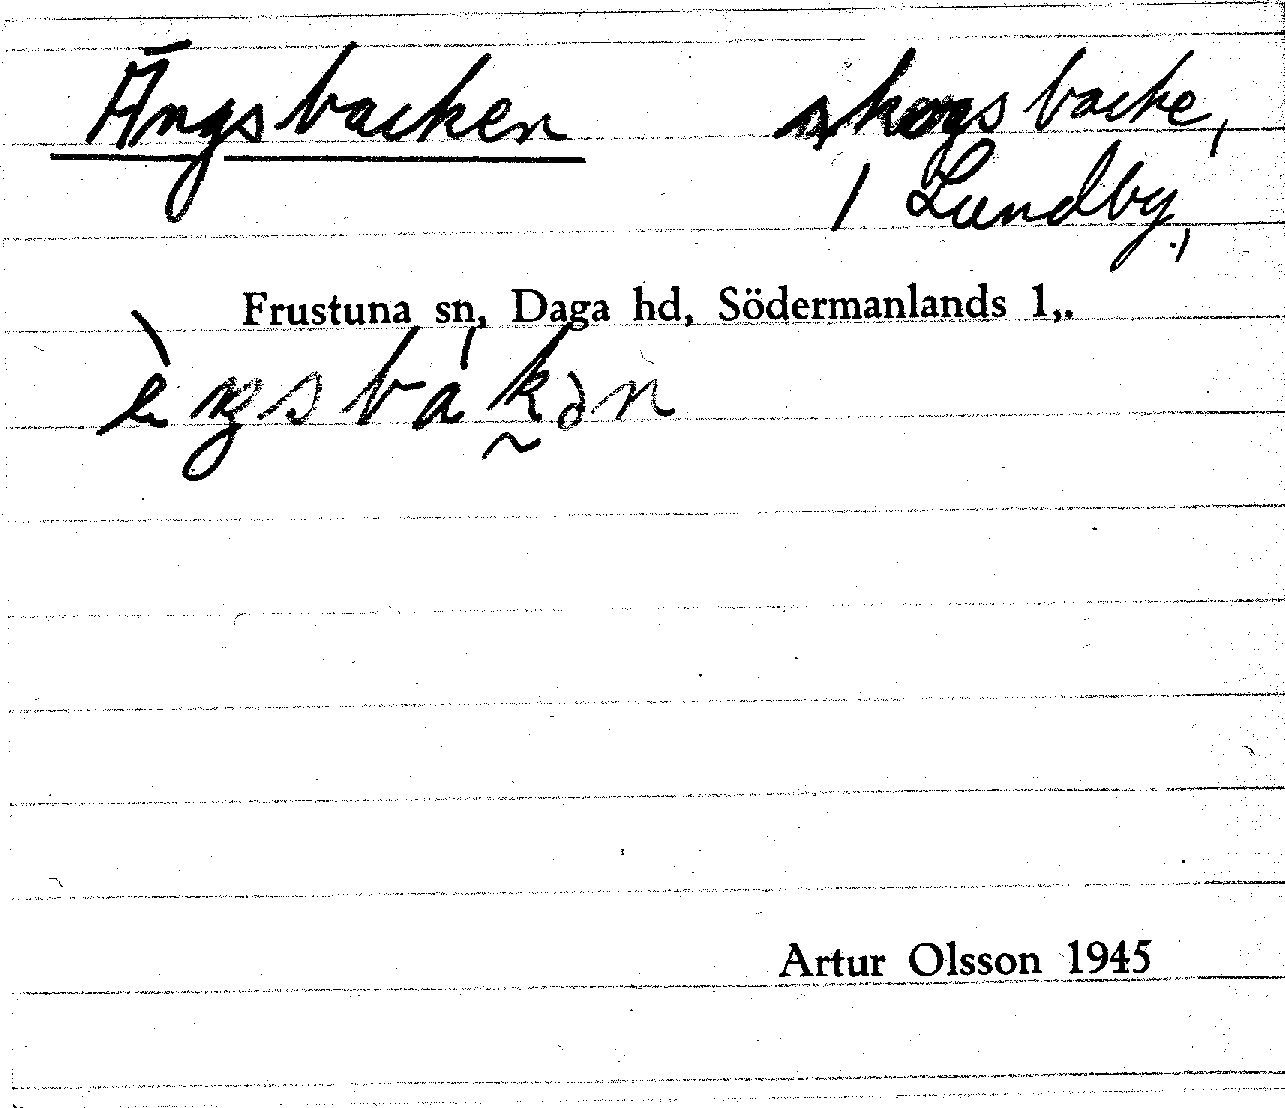 Ängsbacken skogsbacke,
/ Lundby,
Frustuna sn, Daga hd, Södermanlands l,.
èŋsbákən
Artur Olsson 1945